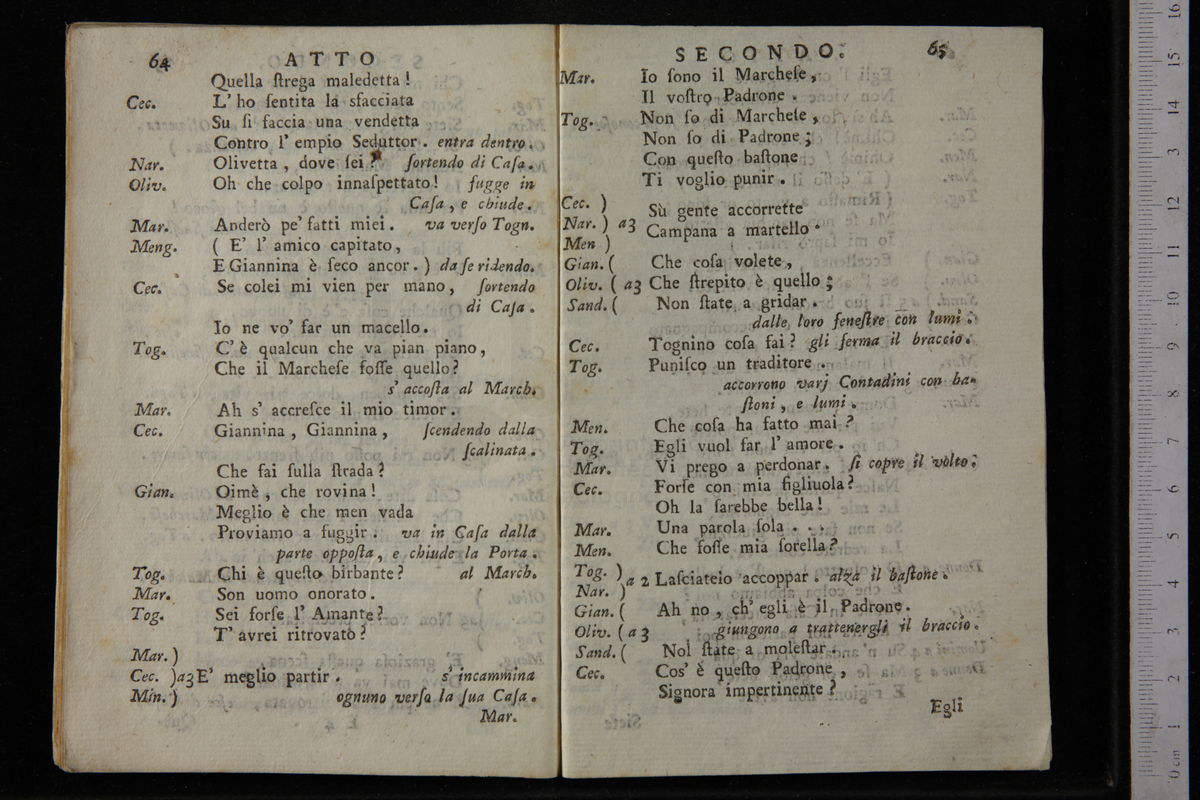 64 ATTO
Quella ſtrega maledetta !
Cec. L' ho ſentita la sfacciata
Su ſi faccia una vendetta
Contro l' empio Seduttor . entra dentro .
Nar. Olivetta , dove ſei ? ſortendo di Caſa .
Oliv. Oh che colpo innaſpettato ! fugge in
Caſa , e chiude .
Mar. Anderò pe' fatti miei . va verſo Togn.
Meng. ( E' l' amico capitato ,
E Giannina è ſeco ancor . ) da ſe ridendo.
Cec. Se colei mi vien per mano , ſortendo
di Caſa .
Io ne vo' far un macello .
Tog. C' è qualcun che va pian piano ,
Che il Marcheſe foſſe quello ?
s' accoſta al March.
Mar. Ah s' accreſce il mio timor .
Cec. Giannina , Giannina , ſcendendo dalla
ſcalinata .
Che fai ſulla ſtrada ?
Gian. Oimè , che rovina !
Meglio è che men vada
Proviamo a fuggir . va in Caſa dalla
parte oppoſta , e chiude la Porta .
Tog. Chi è queſto birbante ? al March.
Mar. Son uomo onorato .
Tog. Sei forſe l' Amante ?
T' avrei ritrovato ?
Mar. )
Cec. )a3 E' meglio partir . s' incammina
Min. ) ognuno verſo la ſua Caſa .
Mar.
SECONDO. 65
Mar. Io ſono il Marcheſe ,
Il voſtro Padrone .
Tog. Non ſo di Marcheſe ,
Non ſo di Padrone ;
Con queſto baſtone
Ti voglio punir .
Cec. ) Sù gente accorrette
Nar. ) a3 Campana a martello .
Men )
Gian. ( Che coſa volete ,
Oliv. ( a3 Che ſtrepito è quello ;
Sand. ( Non ſtate a gridar .
dalle loro feneſtre con lumi .
Cec. Tognino coſa fai ? gli ferma il braccio .
Tog. Puniſco un traditore .
accorrono varj Contadini con ba-
ſtoni , e lumi .
Men. Che coſa ha fatto mai ?
Tog. Egli vuol far l' amore .
Mar. Vi prego a perdonar . ſi copre il volto .
Cec. Forſe con mia figliuola ?
Oh la ſarebbe bella !
Mar. Una parola ſola . . .
Men. Che foſſe mia ſorella ?
Tog. ) a 2 Laſciatelo accoppar . alza il baſtone .
Nar. )
Gian. ( Ah no , ch' egli è il Padrone .
Oliv. ( a 3 giungono a trattenergli il braccio .
Sand. ( Nol ſtate a moleſtar .
Cec. Cos' è queſto Padrone ,
Signora impertinente ?
Egli